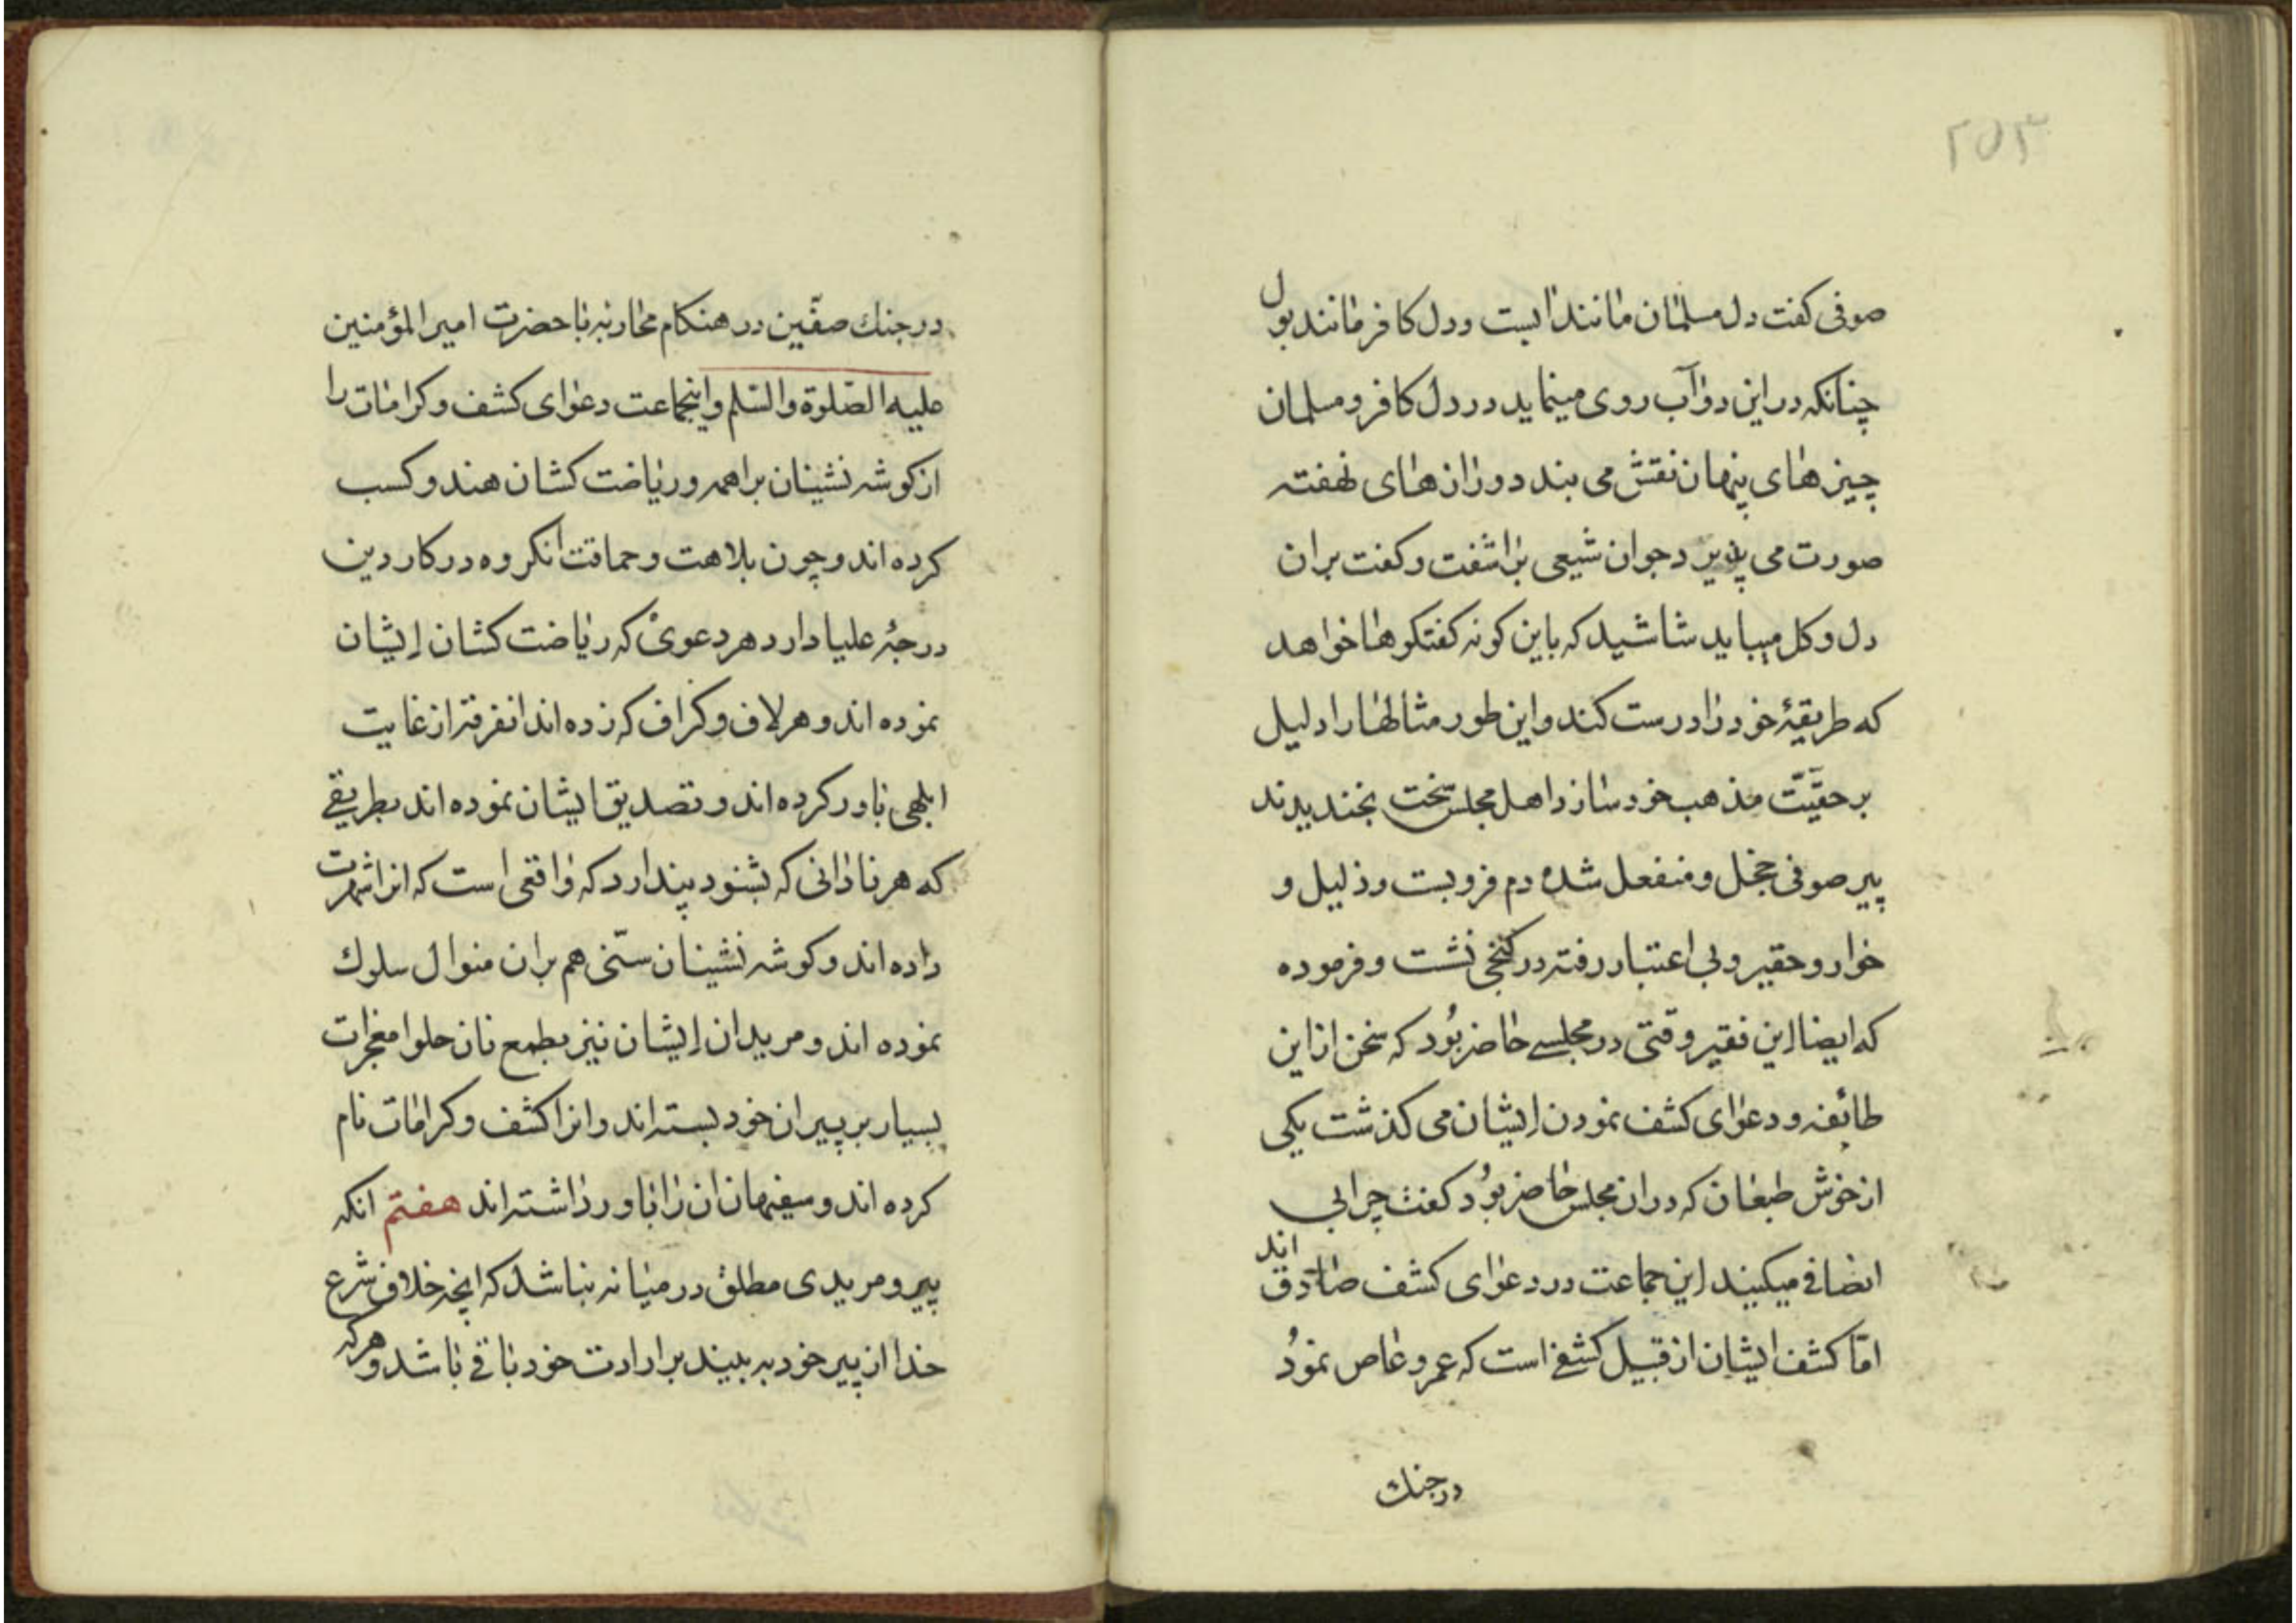 ۲۵۳
صوفی کفت دل مسلمان مانند ابست و دل کافر مانند بول
چنانکه در این دو آب روی مینماید در دل کافر و مسلمان
چیزهای پنهان نقش می بندد و رازهای نهفته
صورت می پذیرد جوان شیعی برآشفت و کفت بر ان
دل و کل میباید شاشید که باین کونه کفتکوها خواهد
که طریقهٔ خود را درست کند و این طور مثالها را دلیل
بر حقیّت مذهب خود سازد اهل مجلس سخت بخندیدند
پیر صوفی خجل و منفعل شده دم فرو بست و ذلیل و
خوار و حقیر و بی اعتبار رفته در کنجی نشست و فرموده
که ایضا این فقیر وقتی در مجلسی حاضر بُود که سخن از این
طائفه و دعوای کشف نمودن ایشان می کذشت یکی
از خوش طبعان که در ان مجلس حاضر بوُد کفت چرا بی
انصافی میکنید این جماعت در دعوای کشف صادق اند
امّا کشف ایشان از قبیل کشفی است که عمرو عاص نموُد
در جنك
در جنك صفّین در هنکام محاربه با حضرت امیر المؤمنین
علیه الصّلوة والسّلم و اینجماعت دعوای کشف و کرامات را
از کوشه نشینان براهمه و ریاضت کشان هند و کسب
کرده اند و چون بلاهت و حماقت انکروه در کار دین
درجهٔ علیا دارد هر دعویٔ که ریاضت کشان ایشان
نموده اند و هر لاف و کراف که زده اند انفرقه از غایت
ابلهی باور کرده اند و تصدیق ایشان نموده اند بطریقی
که هر نادانی که بشنود پندارد که واقعی است که انرا شهرت
داده اند و کوشه نشینان سنّی هم بر ان منوال سلوك
نموده اند و مریدان ایشان نیز بطمع نان حلوا معجزات
بسیار بر پیران خود بسته اند و انرا کشف و کرامات نام
کرده اند و سفیهان ان را باور داشته اند هفتم انکه
پیر و مریدی مطلق در میانه نباشد که انچه خلاف شرع
خدا از پیر خود به بیند بر ارادت خود باقی باشد و هرکه